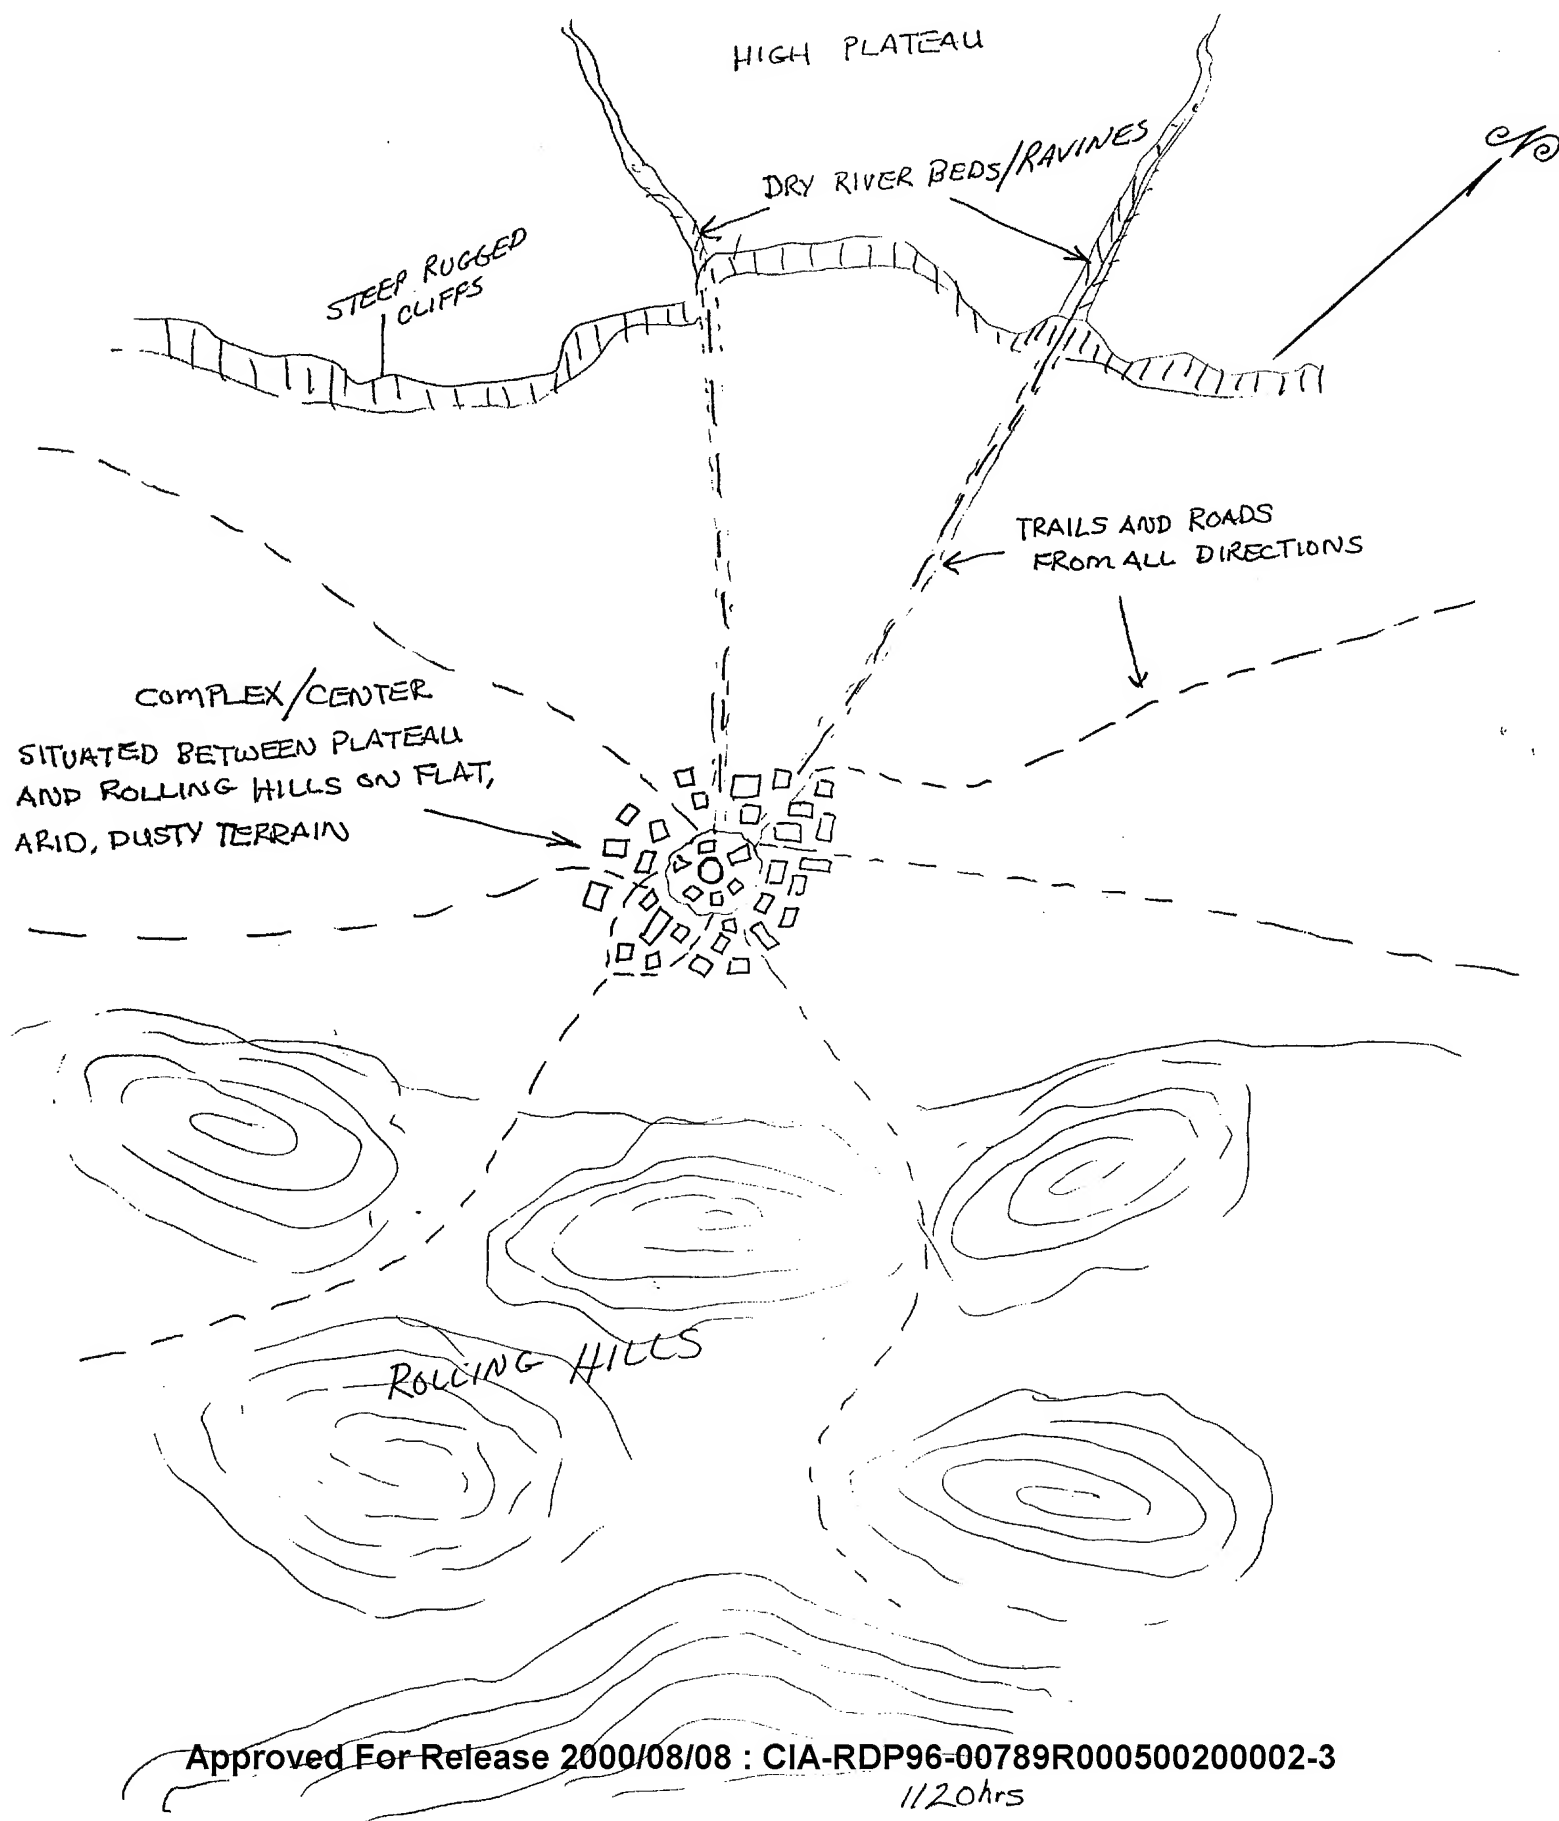 HIGH PLATEAU
N
DRY RIVER BEDS/RAVINES
STEEP RUGGED
CLIFFS
TRAILS AND ROADS
FROM ALL DIRECTIONS
COMPLEX/CENTER
SITUATED BETWEEN PLATEAU
AND ROLLING HILLS ON FLAT,
ARID, DUSTY TERRAIN
ROLLING HILLS
Approved For Release 2000/08/08 : CIA-RDP96-00789R000500200002-3
1120hrs